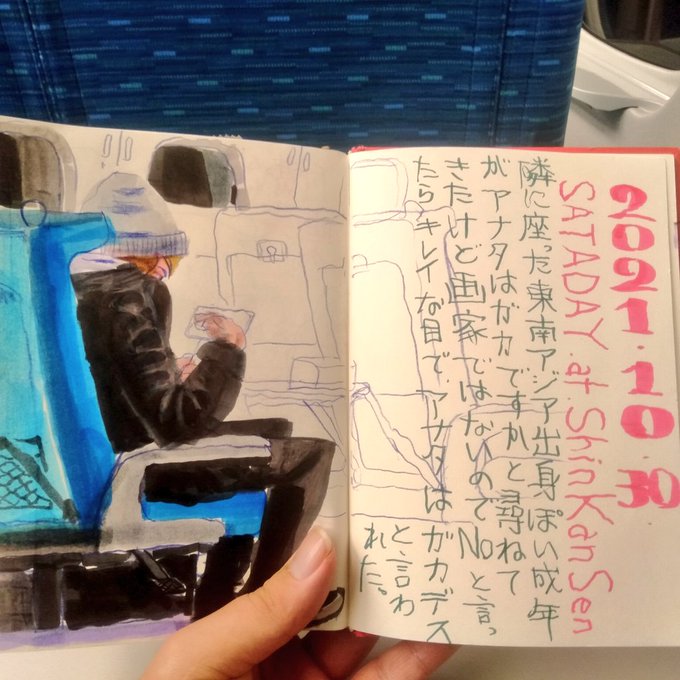 2021.10.30
SATADAY.at.ShinKanSen
隣に座った東南アジア出身ぽい成年
がアナタはガカですかと尋ねて
きたけど画家ではないのでNoと言っ
たらキレイな目で、アナタはガカデス
と、言わ
れた。